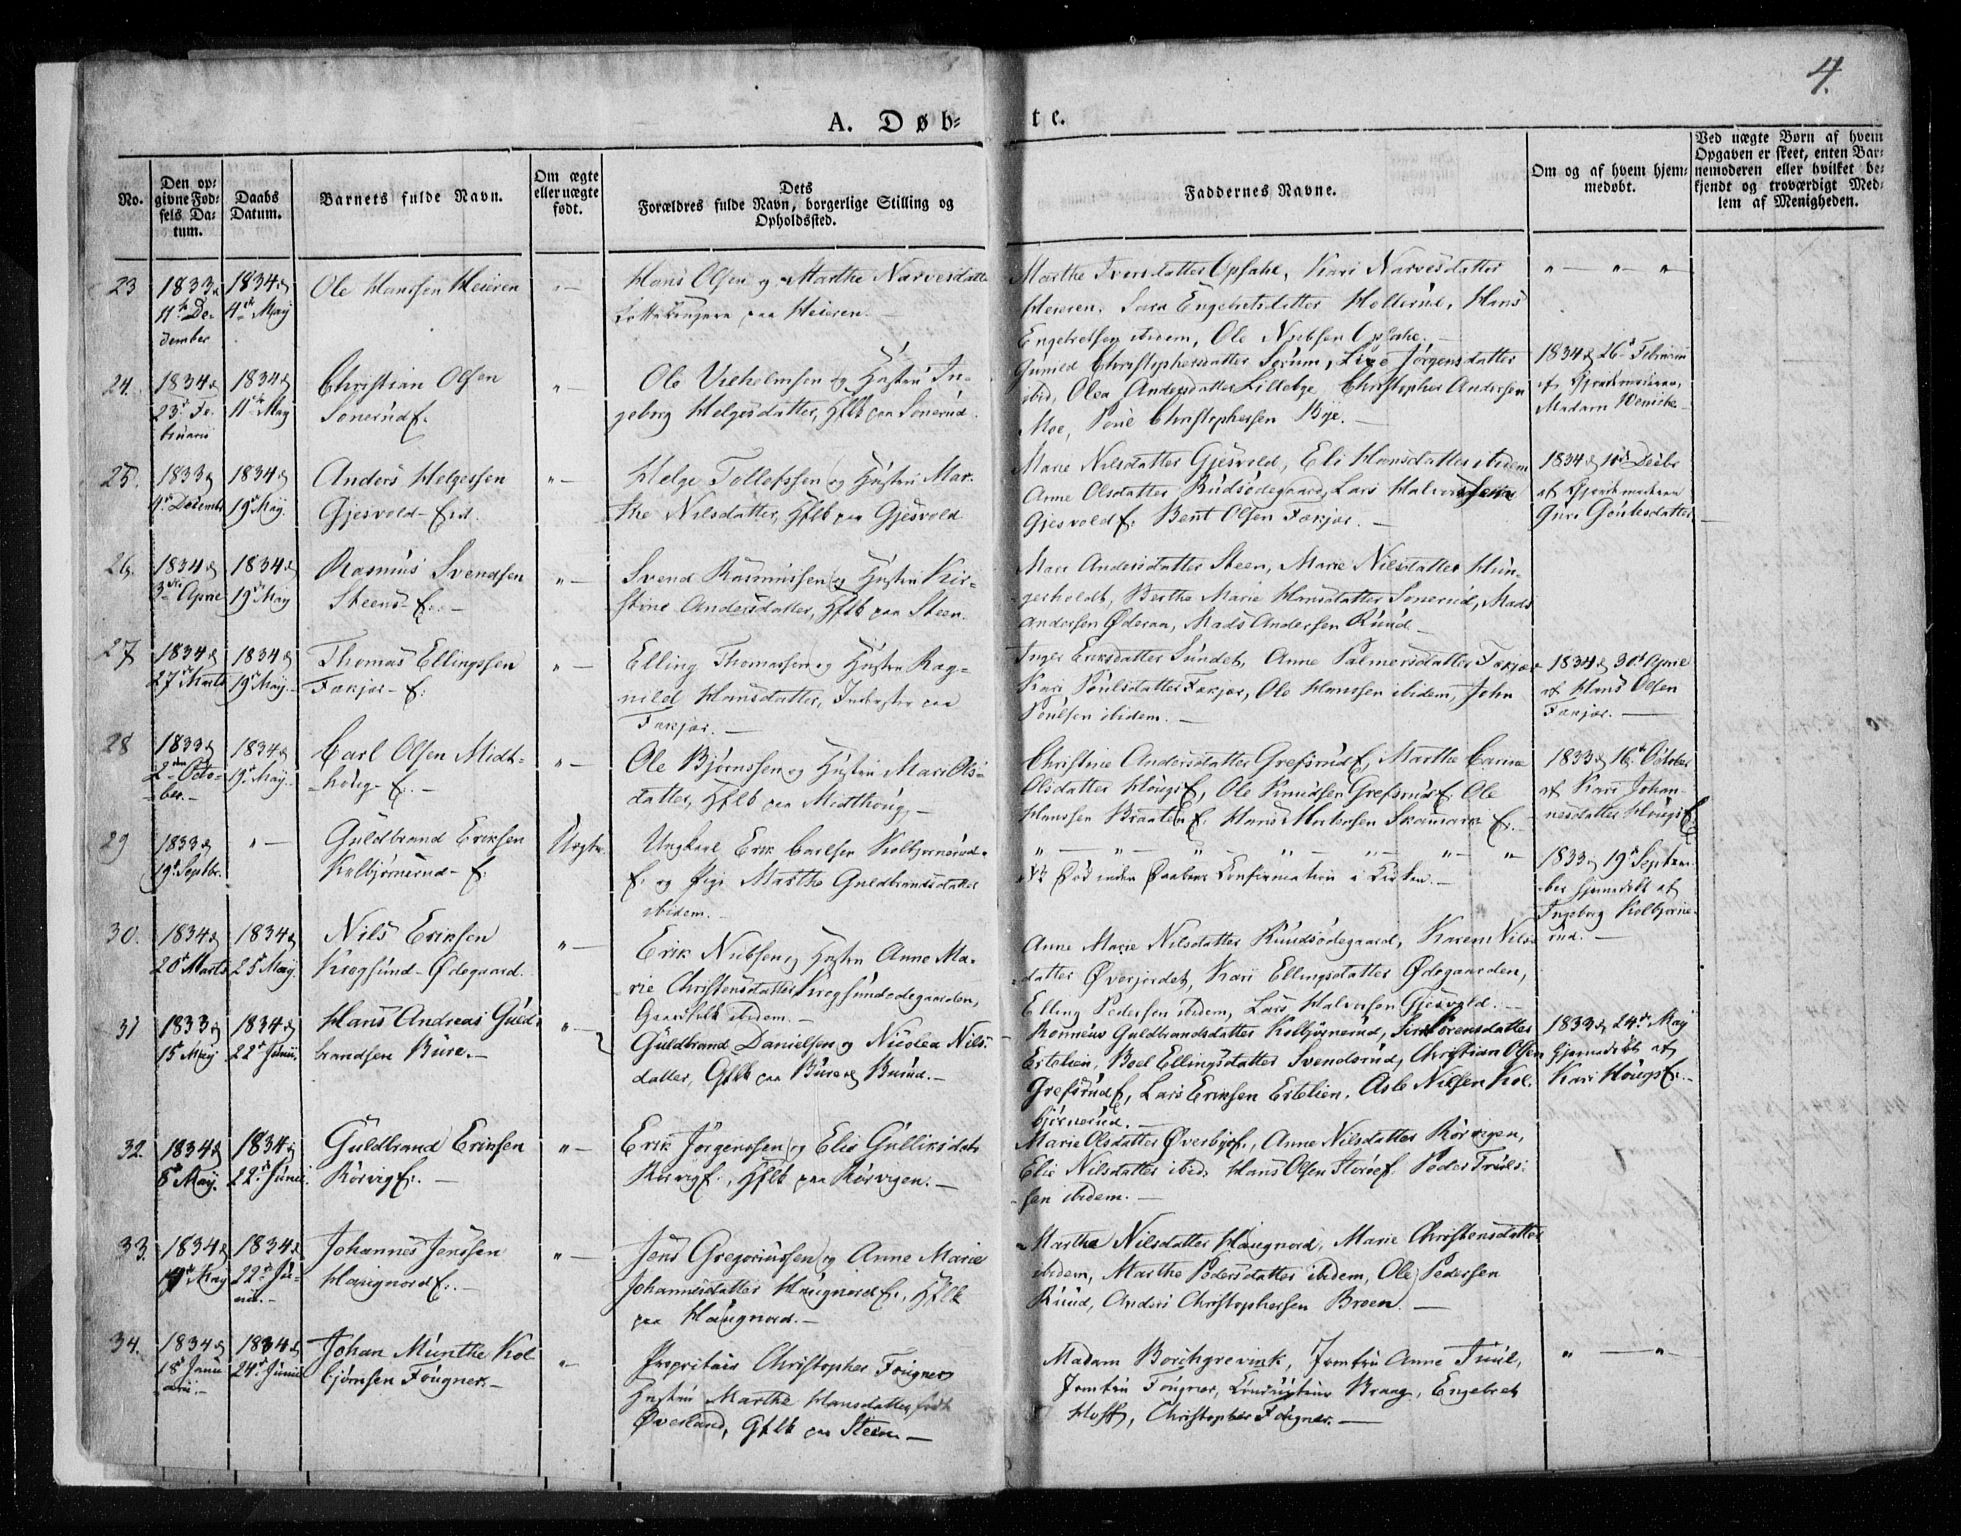 4.
A. Døb-
te.
No.
Den op-
givne Fød-
sels Da-
tum.
Daabs
Datum.
Barnets fulde Navn.
Om ægte
eller uægte
født.
Dets
Forældres fulde Navn, borgerlige Stilling og
Opholdssted.
Faddernes Navne.
Om og af hvem hjem-
medøbt.
Ved uægte Børn af hvem
Opgaven er skeet, enten Bar-
nemoderen eller hvilket be-
kjendt og troværdigt Med-
lem af Menigheden.
23
1833
11te De-
cember
1834
4de May
Ole Hanssen Heieren
Hans Olsen og Marthe Narvesdatter
paa Heieren.
Marthe Iversdatter Opsahl, Kari Narvesdatter
Heieren, Sara Engebretsdatter Hollerud, Hans
Engebretsen ibidem, Ole Opsahl.
24.
1834
23de Fe-
bruarii
1834
11te May
Christian Olsen
Sonerud
Ole Vilhelmsen og Hustru In-
geborg Helgesdatter, Gflk paa Sonerud.
Gunild Christophersdatter Sørum, Lise Jørgensdatter
ibid, Olea Andersdatter Lillebye, Christopher Andersen
Moe, Poul Christophersen Bye.
1834 26de Februarii
af Gjordemoderen,
Madam Wenicke
25.
1833
4de Decembr
1834
19de May
Anders Helgessen
Gjesvold-Eid.
Helge Tollefssen og Hustru Mar-
the Nilsdatter, Gflk paa Gjesvold
Marie Nilsdatter Gjesvold, Eli Hansdatter ibidem
Anne Olsdatter Rudsødegaard, Lars Halvorsen
Gjesvold, Bent Olsen Fækjær.
1834 10de Decbr
af Gjordemoderen
Guri Goutesdatter
26.
1834
3die April
1834
19de May
Rasmus Svendsen
Steens-E.
Svend Rasmussen og Hustru Kir-
stine Andersdatter, Gflk paa Steen.
Mari Andersdatter Steen, Marie Nilsdatter Hun-
gerholdt, Berthe Marie Hansdatter Sonerud, Mads
Andersen Øderaa, Mads Andersen Ruud
27
1834
27de Marts
1834
19de May.
Thomas Ellingssen
Fækjær-E.
Elling Thomassen og Hustru Rag-
nild Hansdatter, Inderster paa
Fækjær.
Inger Eriksdatter Sundet, Anne Palmersdatter Fækjær
Kari Poulsdatter Fækjær, Ole Hanssen ibidem, John
Poulsen ibidem.
1834 30te April
af Hans Olsen
Fækjær.
28
1833
2den Octo-
ber.
1834
19de May.
Carl Olsen Midt-
houg-E.
Ole Bjørnssen og Hustru Mari Ols-
datter, Gflk paa Midthoug
Christine Andersdatter Grefsrud, Marthe Carine
Olsdatter Hougs, Ole Knudsen Grefsrud, Ole
Hanssen Braaten, Hans Skamark E.
1833 16de October
af Kari Johan-
nesdatter Hougs
29
1833
19de Septbr.
Guldbrand Eriksen
Kolbjørnerud-E.
Uægte.
Ungkarl Erik Carlsen Kolbjørnerud-
E. og Pige Marthe Guldbrandsdatter
ibidem.
NB Død inden Daabens Confirmation i Kirken.
1833 19de Septem-
ber hjemmedøbt af
Ingeborg Kolbjørne-
rud.
30.
1834
20de Marts
1834
25de May
Nils Eriksen
Krogsund-Ødegaard.
Erik Nubsen og Hustru Anne Ma-
rie Christensdatter Krogsundødegaarden,
Gaardfolk ibidem.
Anne Marie Nilsdatter Ruudsødegaard, Karen Nils-
datter Øverjordet, Kari Ellingsdatter Ødegaarden,
Elling Pedersen ibidem, Lars Halvorsen Gjesvold.
31
1833
15de May
1834
22de Junii.
Hans Andreas Guld-
brandsen Bure.
Guldbrand Danielsen og Nicolea Nils-
datter, Gflk paa Bure Burud.
Ronneug Guldbrandsdatter Kolbjørnerud, Siri Sørensdatter
Ertelien, Boel Ellingsdatter Svendsrud, Christian Olsen
Grefsrud, Lars Eriksen Ertelien, Asle Nilsen Kol-
bjørnerud.
1833 24de May
hjemmedøbt af
Kari Hougs
32.
1834
8de May.
1834
22de Junii.
Guldbrand Eriksen
Rørvig
Erik Jørgenssen og Elie Gulliksdatter
Rørvig, Gflk paa Rørvigen.
Marie Olsdatter Øverbye, Anne Nilsdatter Rørvigen,
Elie Nilsdatter ibid, Hans Olsen Storøe, Peder Truls-
sen ibidem.
33.
1834
May
1834
22de Ju-
nii.
Johannes Jenssen
Haugnord
Jens Gregoriussen og Anne Marie
Johannesdatter Haugnord, Gflk
paa Haugnord.
Marthe Nilsdatter Haugnord, Marie Christensdatter
ibidem, Marthe Pedersdatter ibidem, Ole Pedersen
Ruud, Anders Christophersen Broen.
34.
1834
18de Janu-
arii.
1834
24de Junii
Johan Munthe Kol-
bjørnsen Fougner.
Proprietair Christopher Fougner
Hustru Marthe Hansdatter, født
Øverland, Gflk paa Steen
Madam Borchgrevink, Jomfru Anne Juul,
Jomfru Fougner, Braag, Engebret
Hoff, Christopher Fougner.